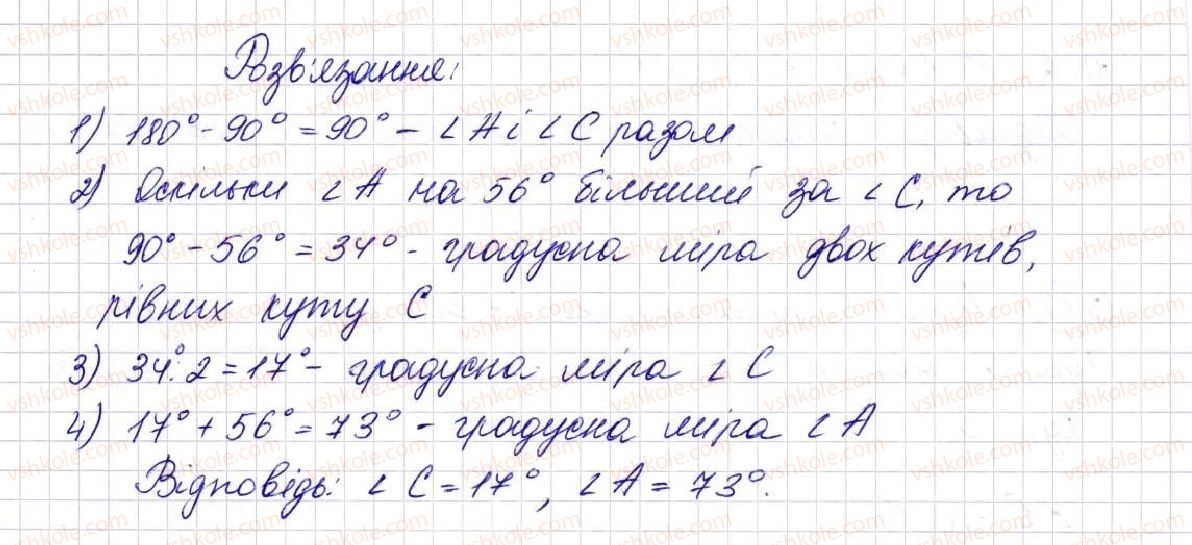 Розв'язання:
1) 180° - 90° = 90° - ∠A і ∠C разом
2) Оскільки ∠A на 56° більший за ∠C, то
90° - 56° = 34° - градусна міра двох кутів,
рівних куту C
3) 34°: 2 = 17° - градусна міра ∠C
4) 17° + 56° = 73° - градусна міра ∠A
Відповідь: ∠C = 17°, ∠A = 73°.
vshkole.com